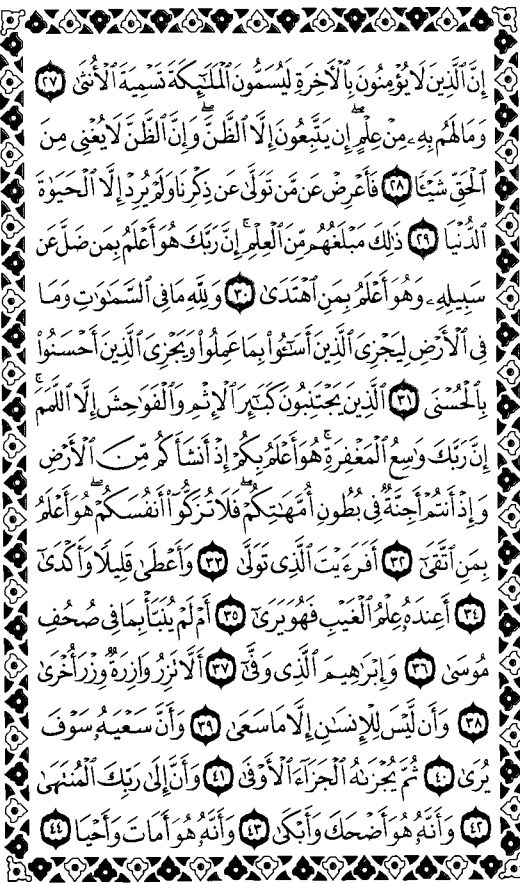 إِنَّ ٱلَّذِينَ لَا يُؤْمِنُونَ بِٱلْأَخِرَةِ لَيُسَمُّونَ ٱلْمَلَٰٓئِكَةَ تَسْمِيَةَ ٱلْأُنثَىٰ ٢٧
وَمَا لَهُم بِهِۦ مِنْ عِلْمٍ ۖ إِن يَتَّبِعُونَ إِلَّا ٱلظَّنَّ ۖ وَإِنَّ ٱلظَّنَّ لَا يُغْنِى مِنَ
ٱلْحَقِّ شَيْـًٔا ٢٨ فَأَعْرِضْ عَن مَّن تَوَلَّىٰ عَن ذِكْرِنَا وَلَمْ يُرِدْ إِلَّا ٱلْحَيَوٰةَ
ٱلدُّنْيَا ٢٩ ذَٰلِكَ مَبْلَغُهُم مِّنَ ٱلْعِلْمِ ۚ إِنَّ رَبَّكَ هُوَ أَعْلَمُ بِمَن ضَلَّ عَن
سَبِيلِهِۦ وَهُوَ أَعْلَمُ بِمَنِ ٱهْتَدَىٰ ٣٠ وَلِلَّهِ مَا فِى ٱلسَّمَٰوَٰتِ وَمَا
فِى ٱلْأَرْضِ لِيَجْزِىَ ٱلَّذِينَ أَسَٰٓـُٔوا۟ بِمَا عَمِلُوا۟ وَيَجْزِىَ ٱلَّذِينَ أَحْسَنُوا۟
بِٱلْحُسْنَى ٣١ ٱلَّذِينَ يَجْتَنِبُونَ كَبَٰٓئِرَ ٱلْإِثْمِ وَٱلْفَوَٰحِشَ إِلَّا ٱللَّمَمَ ۚ
إِنَّ رَبَّكَ وَٰسِعُ ٱلْمَغْفِرَةِ ۚ هُوَ أَعْلَمُ بِكُمْ إِذْ أَنشَأَكُم مِّنَ ٱلْأَرْضِ
وَإِذْ أَنتُمْ أَجِنَّةٌ فِى بُطُونِ أُمَّهَٰتِكُمْ ۖ فَلَا تُزَكُّوٓا۟ أَنفُسَكُمْ ۖ هُوَ أَعْلَمُ
بِمَنِ ٱتَّقَىٰٓ ٣٢ أَفَرَءَيْتَ ٱلَّذِى تَوَلَّىٰ ٣٣ وَأَعْطَىٰ قَلِيلًا وَأَكْدَىٰٓ
٣٤ أَعِندَهُۥ عِلْمُ ٱلْغَيْبِ فَهُوَ يَرَىٰٓ ٣٥ أَمْ لَمْ يُنَبَّأْ بِمَا فِى صُحُفِ
مُوسَىٰ ٣٦ وَإِبْرَٰهِيمَ ٱلَّذِى وَفَّىٰٓ ٣٧ أَلَّا تَزِرُ وَازِرَةٌ وِزْرَ أُخْرَىٰ
٣٨ وَأَن لَّيْسَ لِلْإِنسَٰنِ إِلَّا مَا سَعَىٰ ٣٩ وَأَنَّ سَعْيَهُۥ سَوْفَ
يُرَىٰ ٤٠ ثُمَّ يُجْزَىٰهُ ٱلْجَزَآءَ ٱلْأَوْفَىٰ ٤١ وَأَنَّ إِلَىٰ رَبِّكَ ٱلْمُنتَهَىٰ
٤٢ وَأَنَّهُۥ هُوَ أَضْحَكَ وَأَبْكَىٰ ٤٣ وَأَنَّهُۥ هُوَ أَمَاتَ وَأَحْيَا ٤٤